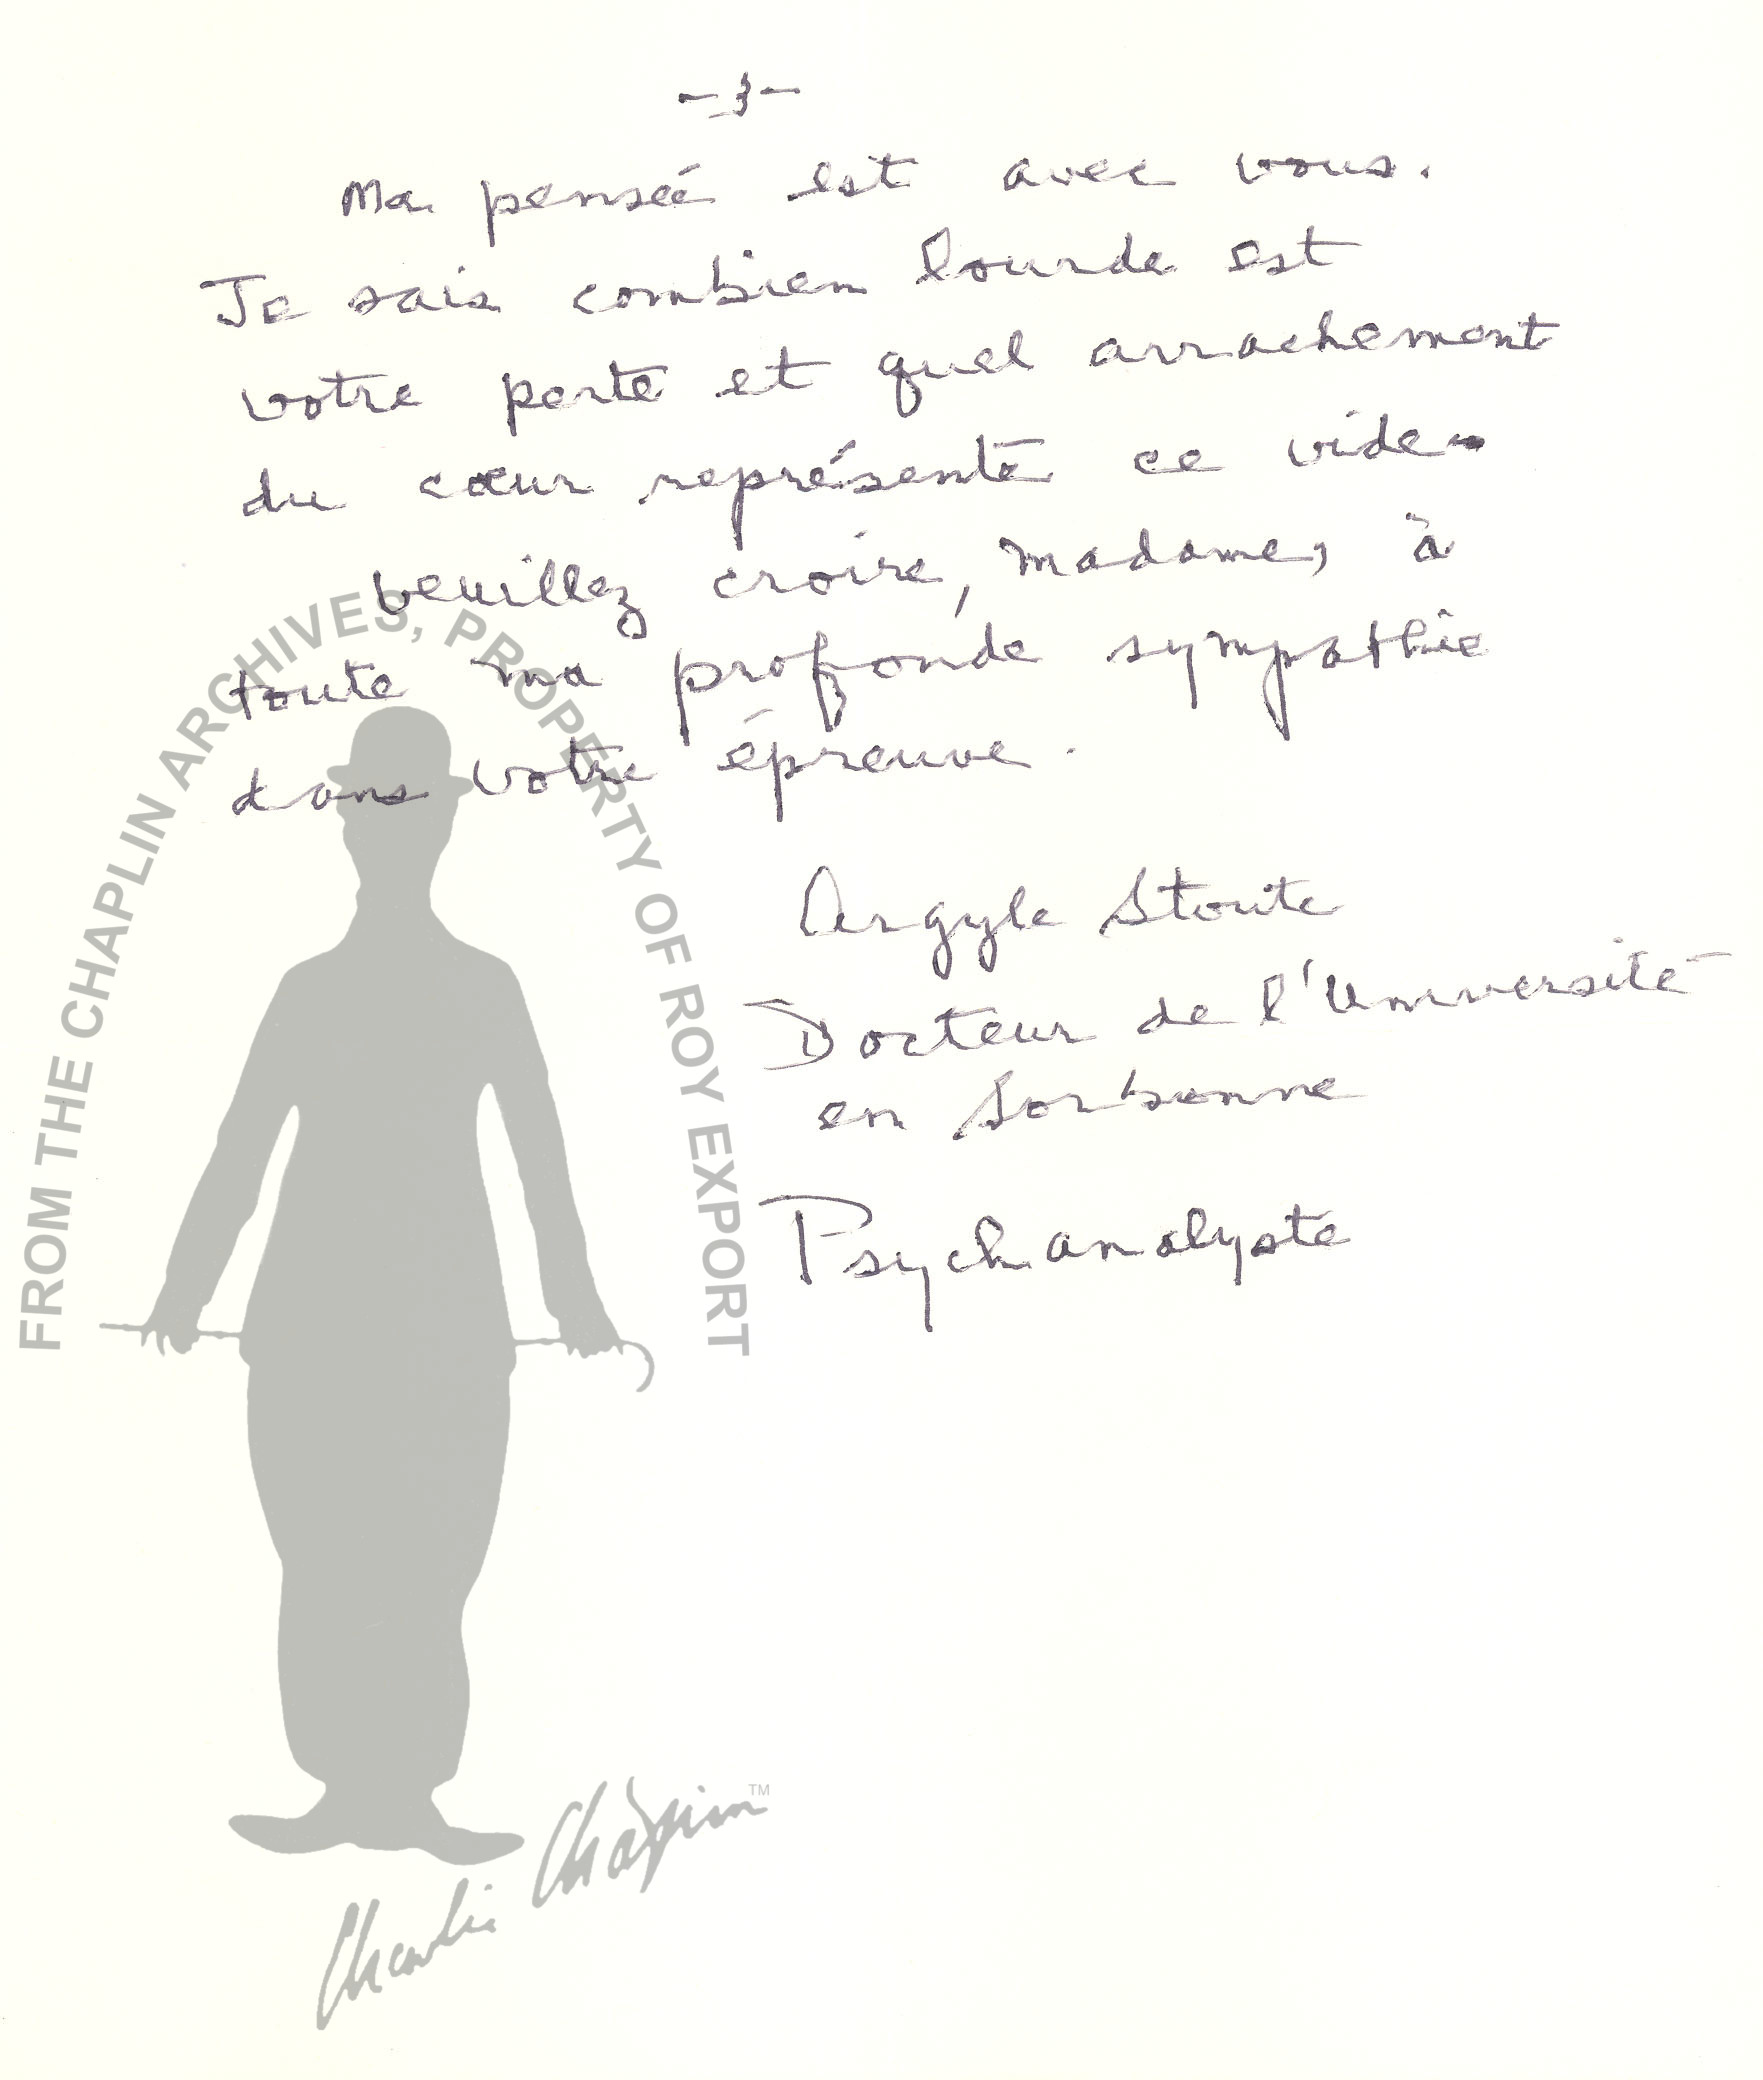 -3-
Ma pensée est avec vous.
Je sais combien lourde est
votre perte et quel arrachement
du cœur représente ce vide.
Veuillez croire, Madame, à
toute ma profonde sympathie
dans votre épreuve.
Argyle Stoute
Docteur de l'Université
en Sorbonne
Psychanalyste
FROM THE CHAPLIN ARCHIVES, PROPERTY OF ROY EXPORT
Charlie Chaplin™